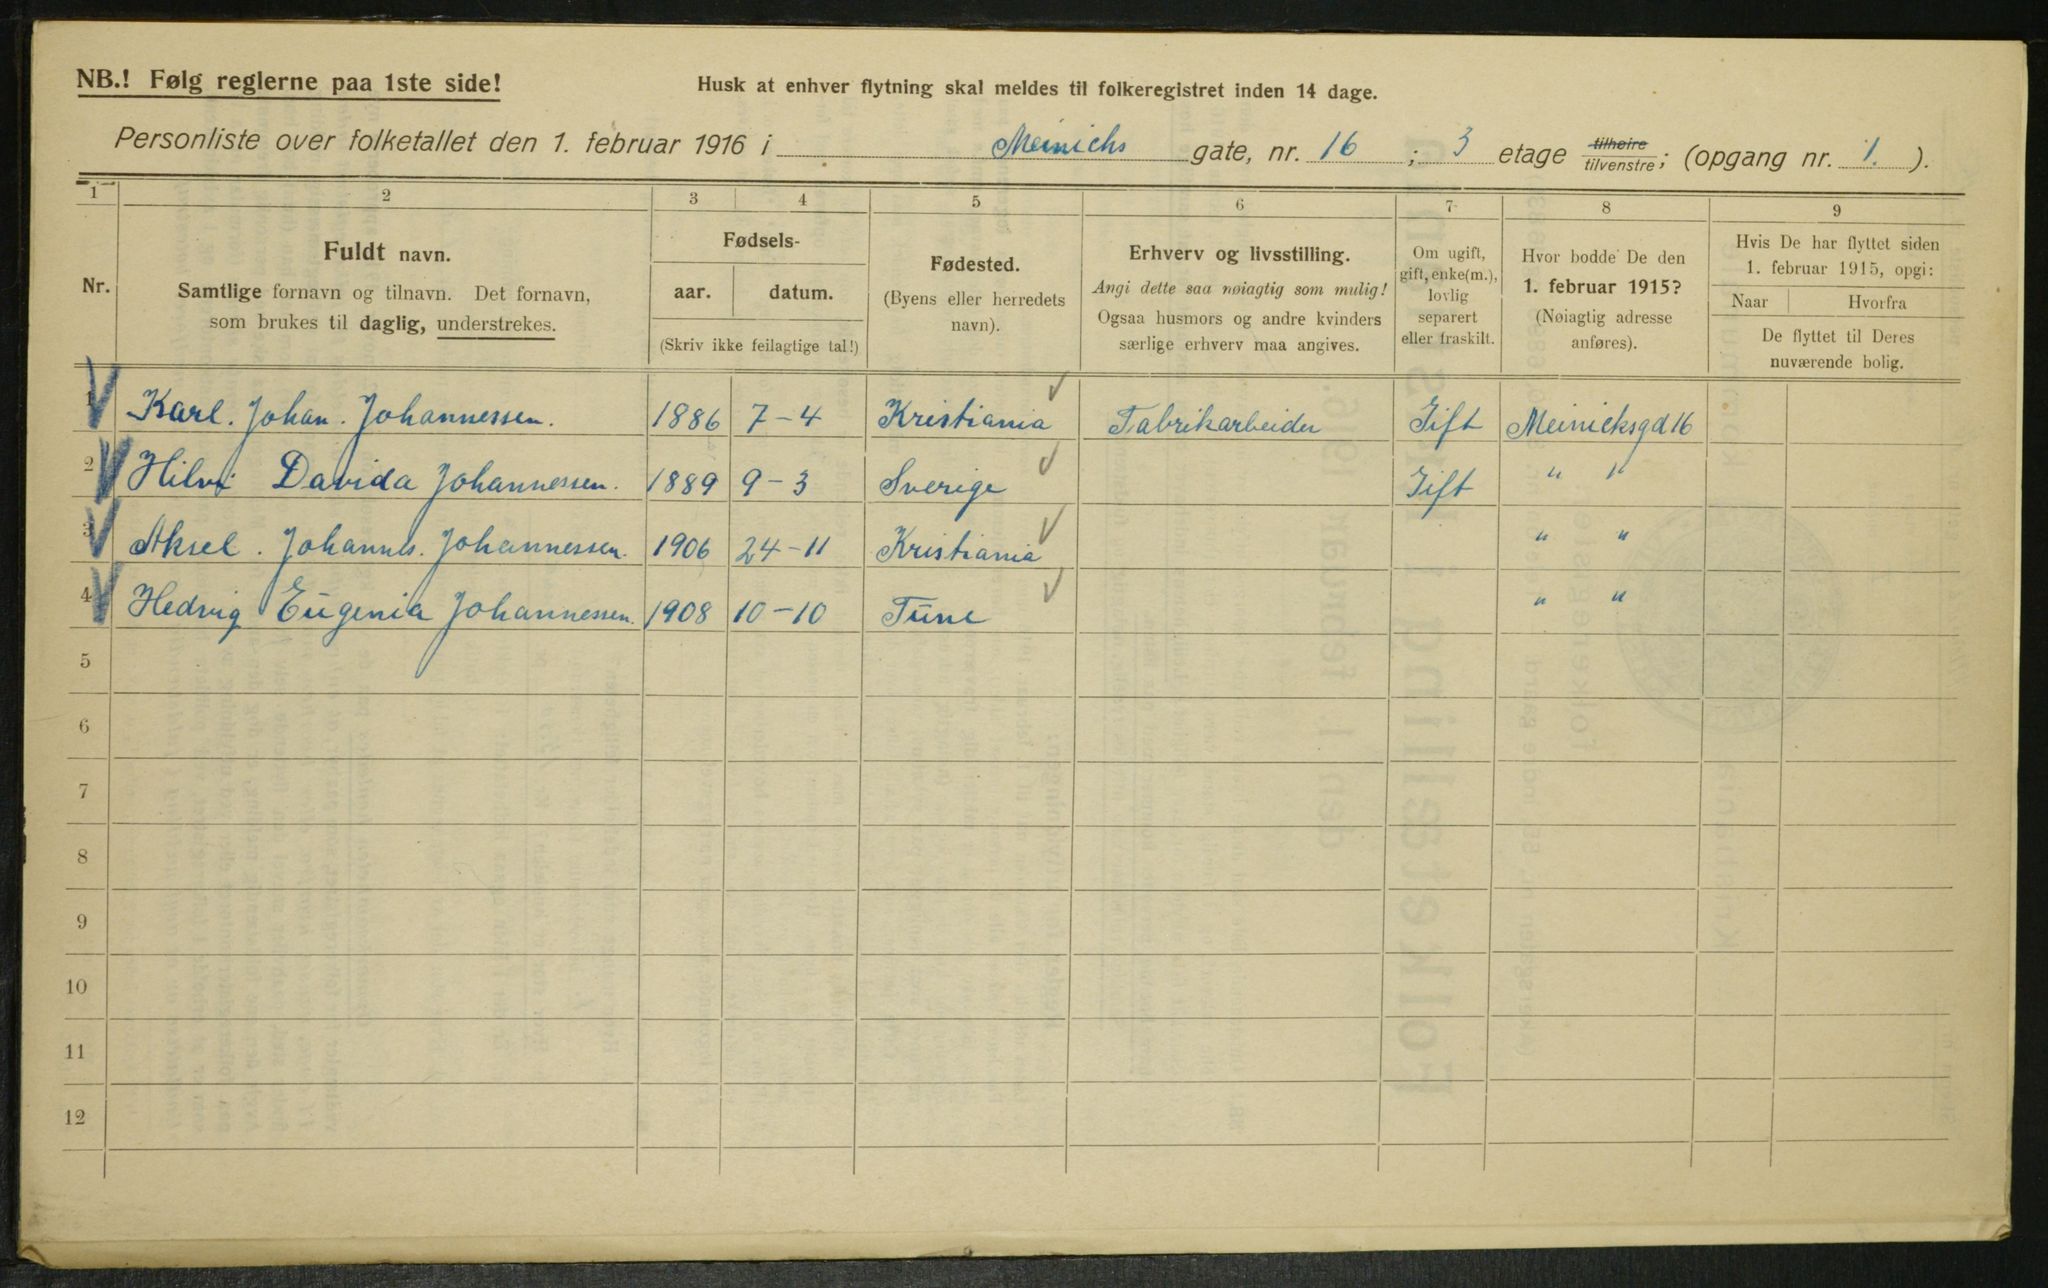 NB.! Følg reglerne paa 1ste side!
Husk at enhver flytning skal meldes til folkeregistret inden 14 dage.
Personliste over folketallet den 1. februar 1916 i Meinichs gate, nr. 16 ; 3 etage tilhøire tilvenstre; (opgang nr. 1. ).
1 2 3 4 5 6 7 8 9
Nr.
Fuldt navn.
Samtlige fornavn og tilnavn. Det fornavn,
som brukes til daglig, understrekes.
Fødsels-
aar. datum.
(Skriv ikke feilagtige tal!)
Fødested.
(Byens eller herredets
navn).
Erhverv og livsstilling.
Angi dette saa nøiagtig som mulig!
Ogsaa husmors og andre kvinders
særlige erhverv maa angives.
Om ugift,
gift, enke(m.),
lovlig
separert
eller fraskilt.
Hvor bodde De den
1. februar 1915?
(Nøiagtig adresse
anføres).
Hvis De har flyttet siden
1. februar 1915, opgi:
Naar Hvorfra
De flyttet til Deres
nuværende bolig.
1 Karl. Johan. Johannessen. 1886 7-4 Kristiania Fabrikarbeider Gift Meinicksgd 16
2 Davida Johannessen. 1889 9-3 Sverige Gift " "
3 Aksel. Johannes. Johannessen. 1906 24-11 Kristiania " "
4 Hedvig Eugenia Johannessen. 1908 10-10 Tune " "
5
6
7
8
9
10
11
12